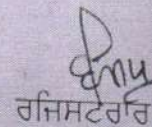 ਰਜਿਸਟਰਾਰ